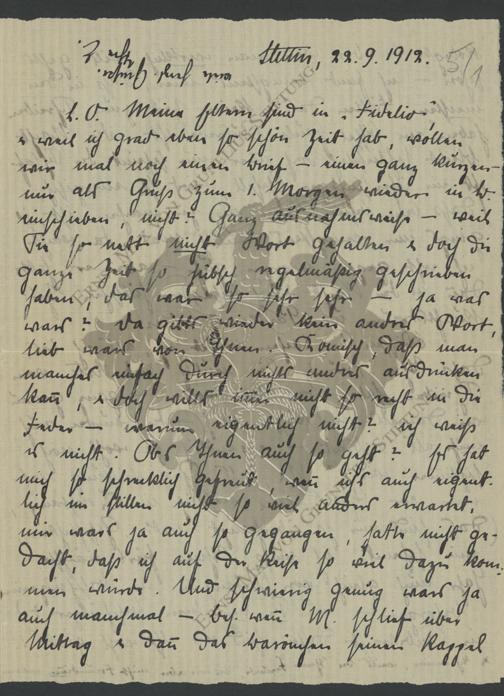 Stettin, 22. 9. 1912.
5/1
L. O. Meine Eltern sind in „Fidelio“
u weil ich grad eben so schön Zeit hab, wollen
wir mal noch einen Brief – einen ganz kurzen –
nur als Gruß zum 1. Morgen wieder in B.
einschieben, nicht? Ganz ausnahmsweise – weil
Sie so nett nicht Wort gehalten u doch die
ganze Zeit so hübsch regelmäßig geschrieben
haben, das war so sehr sehr – ja was
wars? Da gibts wieder kein andres Wort,
lieb wars von Ihnen. Komisch, daß man
manches einfach durch nichts andres ausdrücken
kann, u doch wills immer nicht so recht in die
Feder – warum eigentlich nicht? ich weiß
es nicht. Obs Ihnen auch so geht? Es hat
mich so schrecklich gefreut, wenn ichs auch eigent-
lich im stillen nicht so viel anders erwartet,
mir wars ja auch so gegangen, hatte nicht ge-
dacht, daß ich auf der Reise so viel dazu kom-
men würde. Und schwierig genug wars ja
auch manchmal – bes. wenn M. schlief über
Mittag u dann das Barönchen seinen Rappel